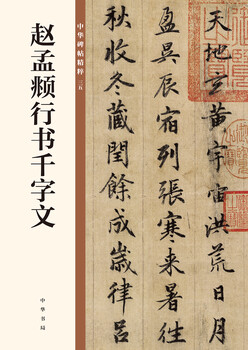 中华碑帖精粹
赵孟頫行书千字文
中华书局
天地玄黄宇宙洪荒日月
盈昃辰宿列張寒来暑往
秋收冬藏閏餘成歲律吕